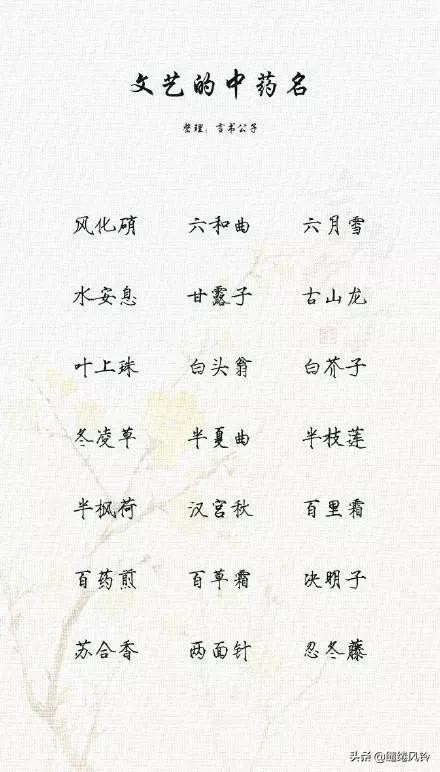 文艺的中药名
整理：言书公子
风化硝 六和曲 六月雪
水安息 甘露子 古山龙
叶上珠 白头翁 白芥子
冬凌草 半夏曲 半枝莲
半枫荷 汉宫秋 百里霜
百药煎 百草霜 决明子
苏合香 两面针 忍冬藤
头条 @缱绻风铃